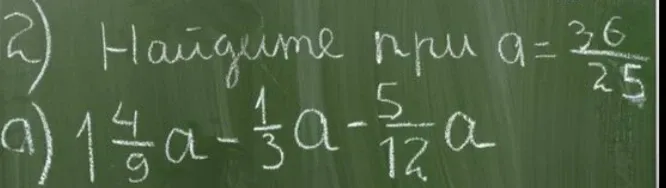 2) Найдите при a = 36/25
а) 1 4/9 a - 1/3 a - 5/12 a